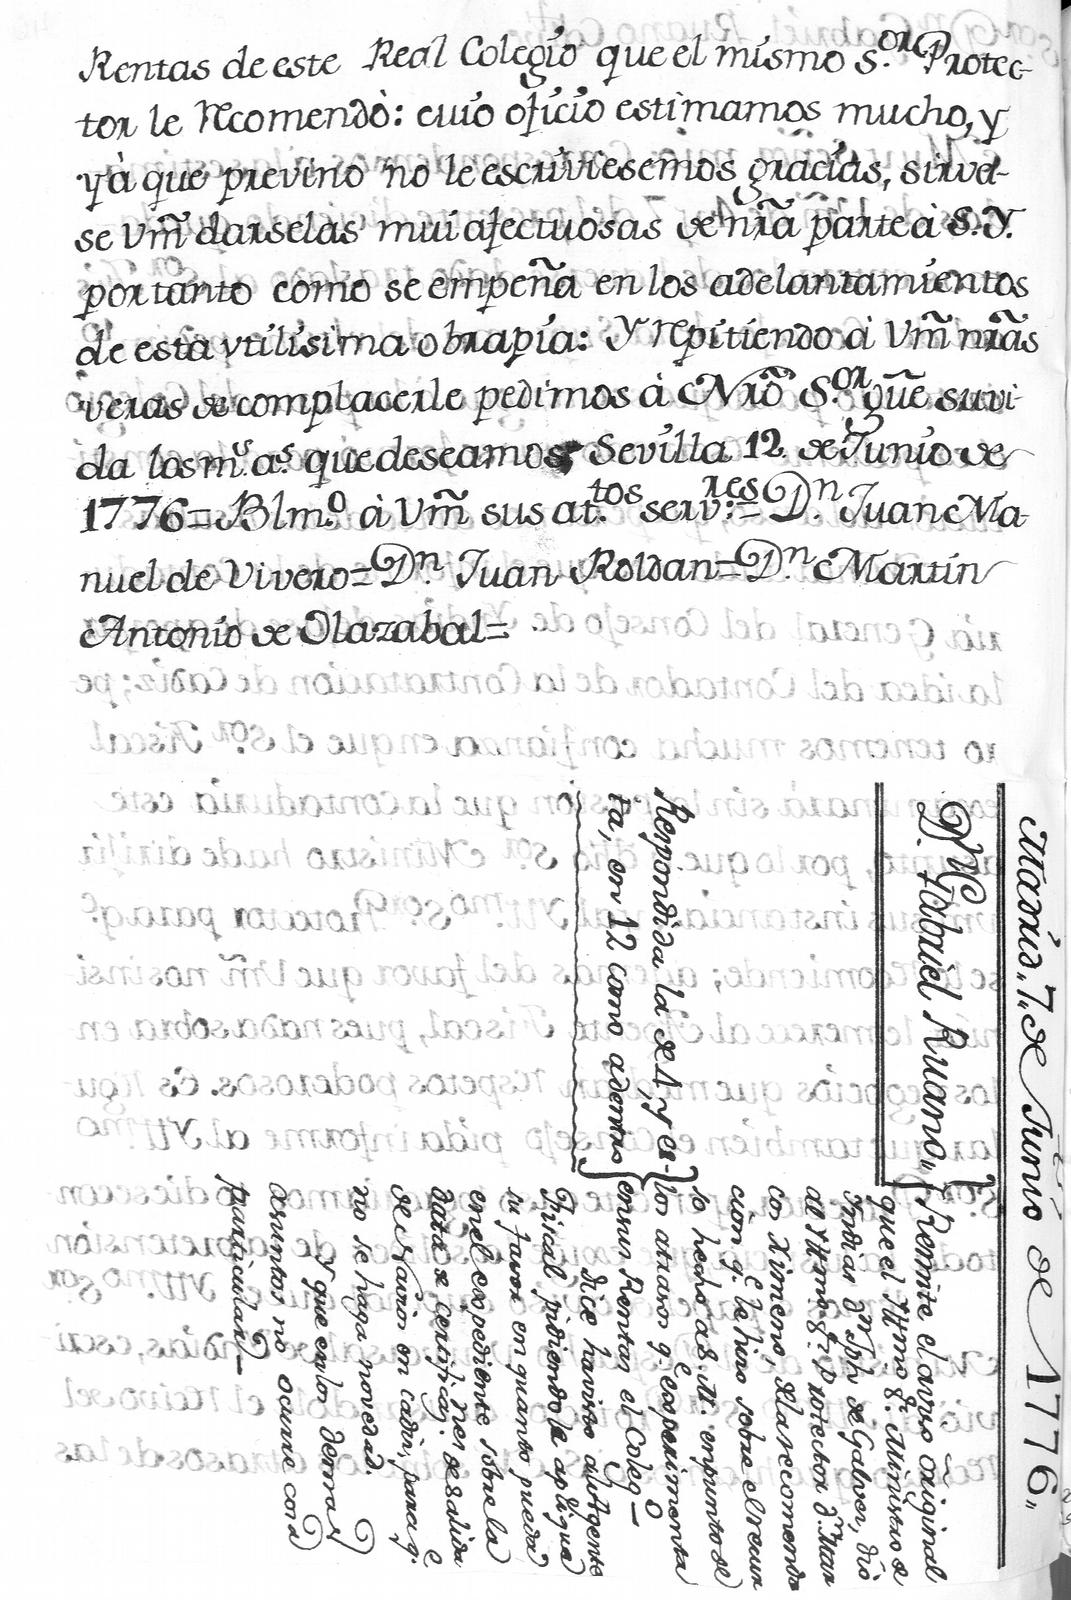 Rentas de este Real Colegio que el mismo s.or Protec-
tor le Recomendò: cuio oficio estimamos mucho, y
yà que previno no le escriviesemos gracias, sirva-
se Vm̃ darselas mui afectuosas de nr̃a parte à S.Y.
por tanto como se empeña en los adelantamientos
de esta vtilisima obrapia: Y repitiendo à Vm̃ nr̃as
veras de complacerle pedimos à Nrõ S.or gũe su vi-
da los m.s a.s que deseamos, Sevilla 12 de Junio de
1776= Blm.o à Vm̃ sus at.tos serv.res= Dn. Juan Ma-
nuel de Vivero= Dn. Juan Roldan= Dn. Martin
Antonio de Olazabal=
Madrid, 7, de Junio de 1776,,
Dn. Gabriel Ruano,,
Remite el aviso original
que el Yllmo Sr. Ministro de
Yndias Dn. Jph de Galvez, dió
al Yllmo Sr. Protector Dn. Fran
co Ximeno, de la recomenda
cion q.e le hizo sobre el recur
so hecho a S.M. en punto de
los atrasos q.e experimenta
en sus Rentas el Coleg-o
Dice haviso al Agente
Fiscal pidiendole aplique
su favor en quanto pueda
en el expediente sobre la
data de Certificaz.nes de salida
de Navio en cadiz, para q.e
no se haga novedad.
Y que en los demas
asuntos no ocurre cosa
particular,,
Respondida la de 4, y es-
ta, en 12 como adentro